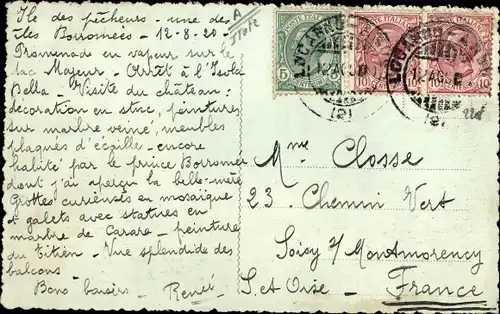 Ile des pêcheurs - une des
îles Borromées - 12-8-20 -
Promenade en vapeur sur le
lac Majeur - Arrêt à l'Isola
Bella - Visite du château :
décoration en stuc, peintures
sur marbre veiné, meubles
plaqués d'écaille - encore
habité par le prince Borromée
dont j'ai aperçu la belle-mère
Grottes curieuses en mosaïque
galets avec statues en
marbre de Carare - peinture
du Titien - Vue splendide des
balcons -
Bons baisers - René
A
POSTE ITALIANE
5
10
10
LOCARNO
12.AG.
(2)
Mme Closse
23 Chemin Vert
Soisy s/ Montmorency
S. et Oise - France